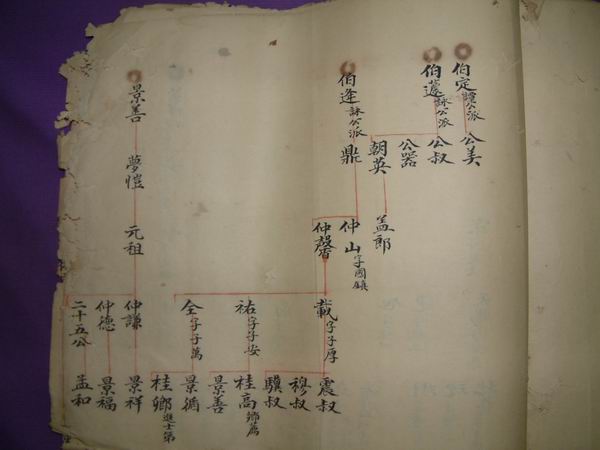 伯定謹公派
公美
伯蘧詠公派
公叔
公器
朝英
孟郎
伯逢詠公派
鼎
仲山字國鎮
仲馨
載字子厚
震叔
穆叔
驥叔
祐字子安
桂高鄉薦
景善
全字子萬
景循
桂鄉進士第
景善
夢愷
元祖
仲謙
景祥
仲德
景福
二十五公
孟和